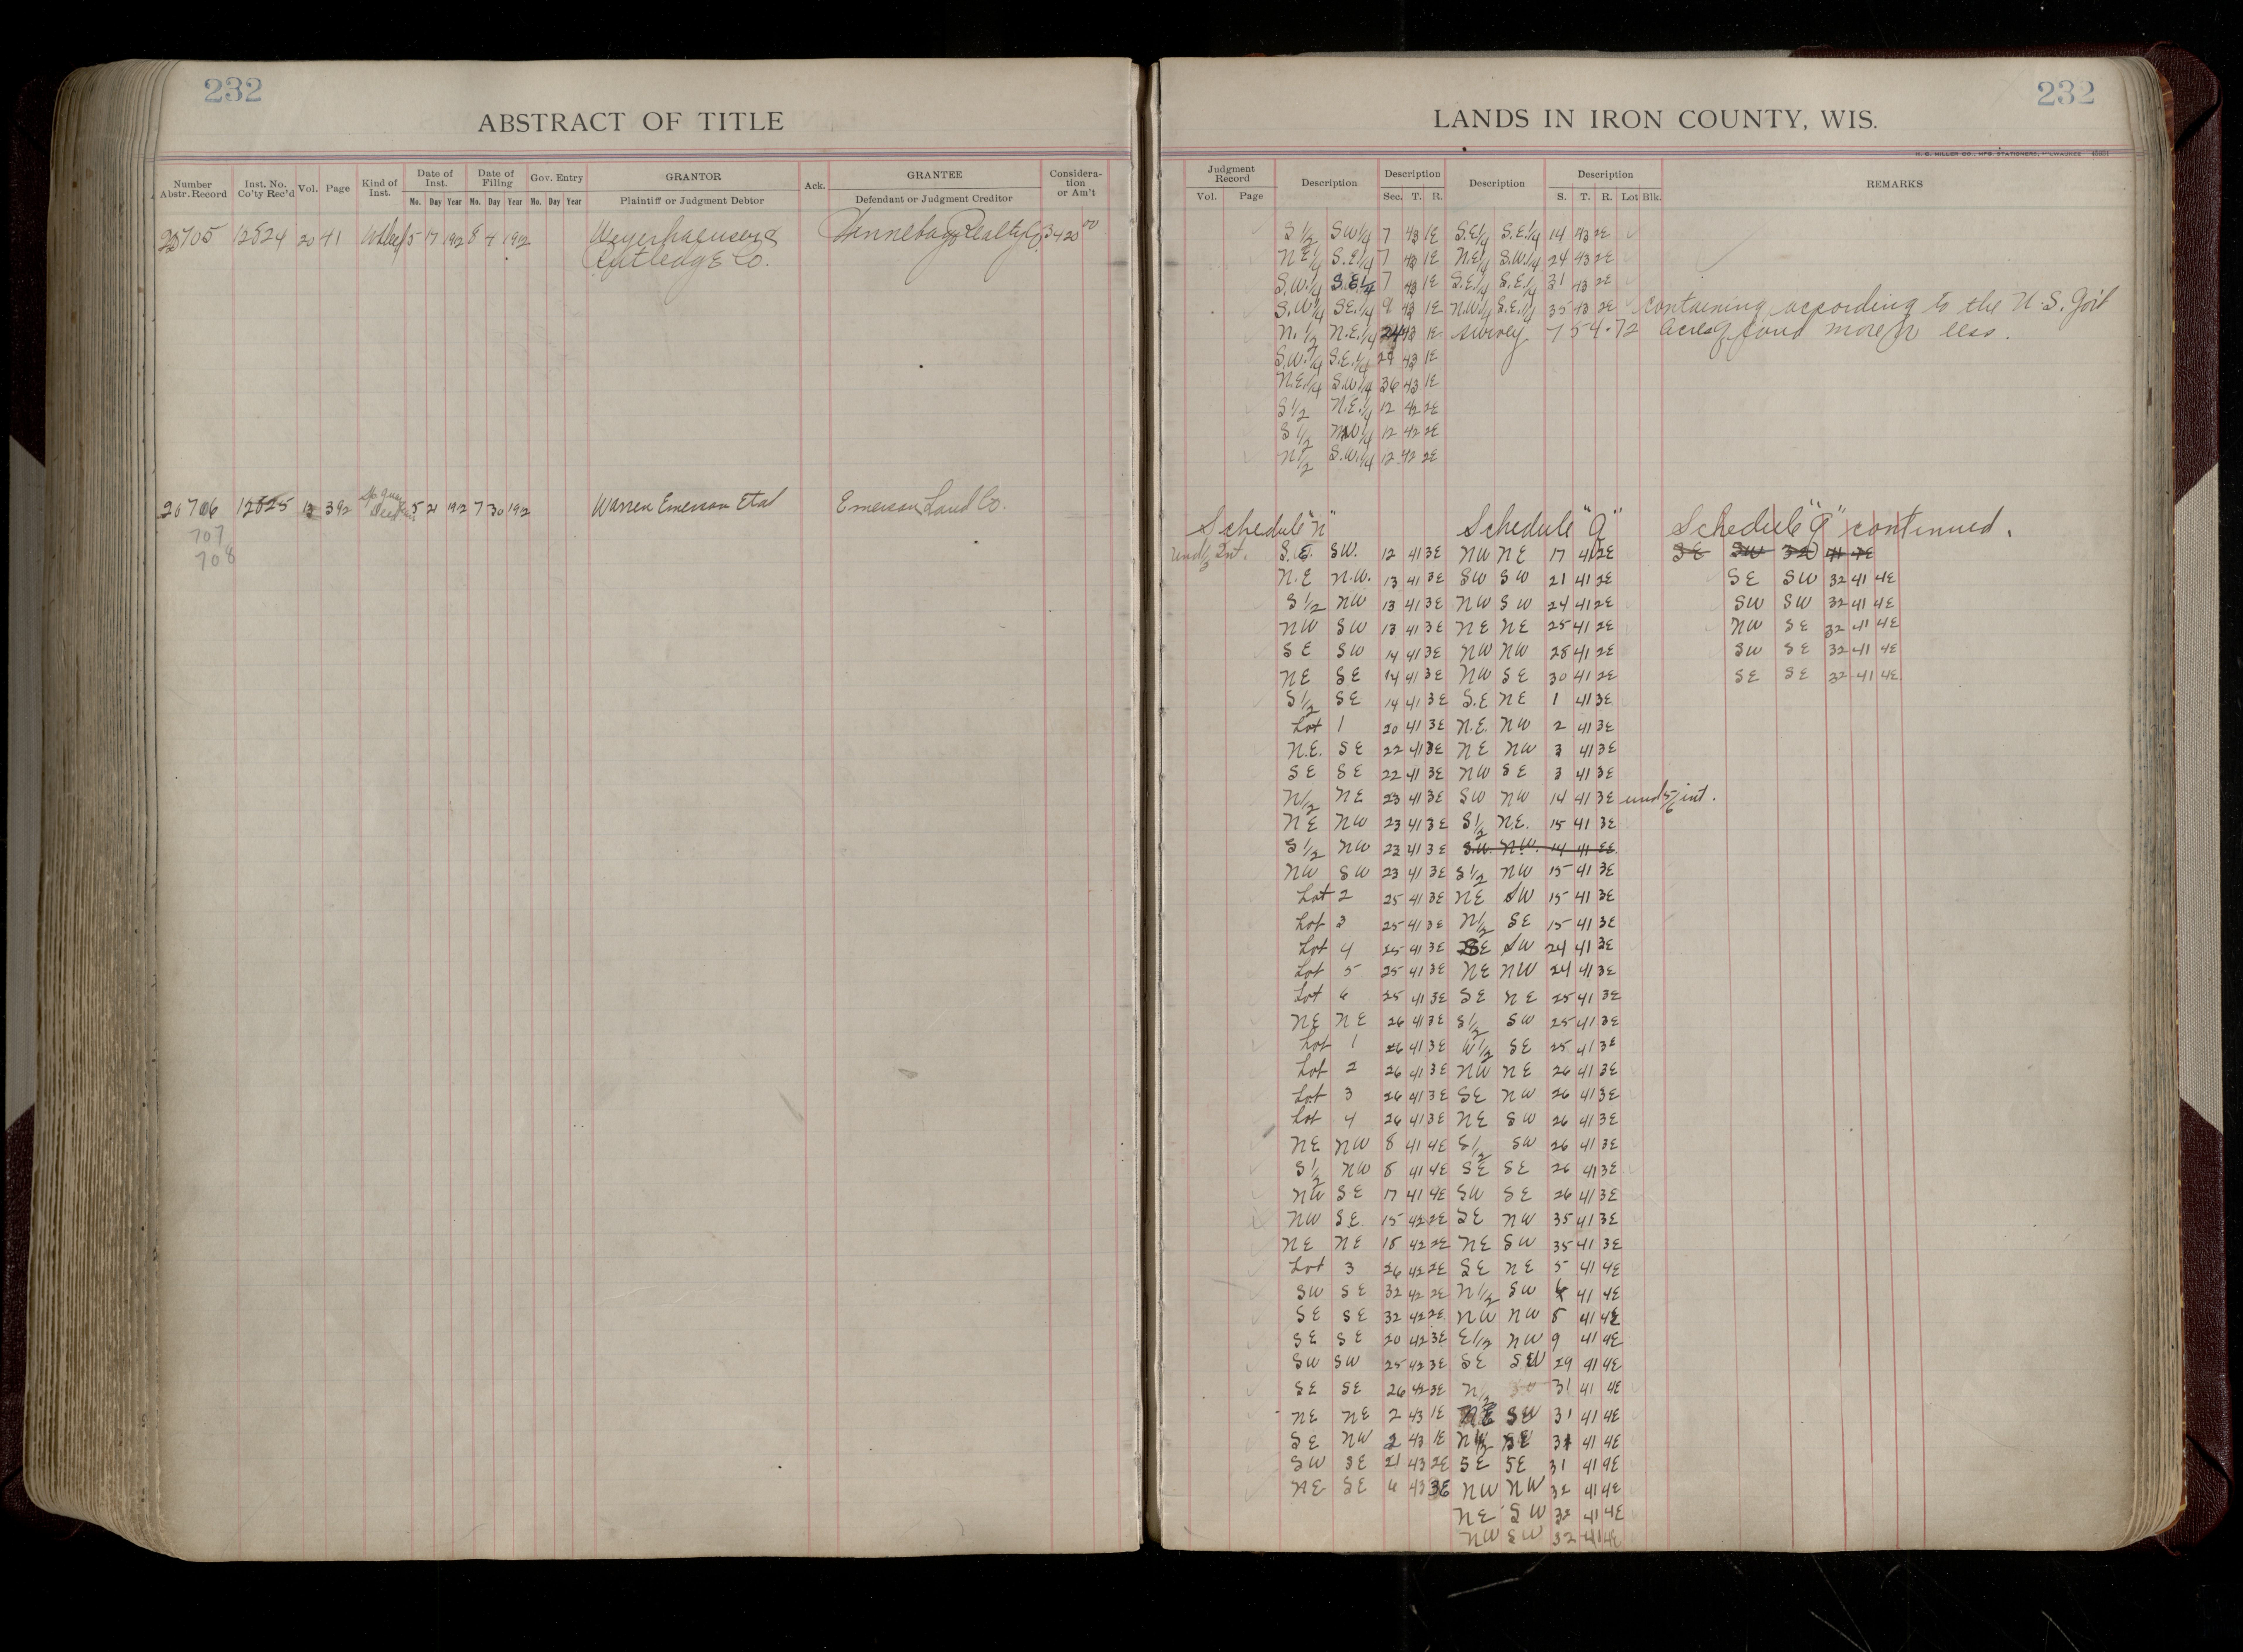 232
ABSTRACT OF TITLE
Number Abstr. Record Inst. No. Co'ty Rec'd Vol. Page Kind of Inst. Date of Inst. Date of Filing Gov. Entry GRANTOR Ack. GRANTEE Considera-tion or Am't
Mo. Day Year No. Day Year No. Day Year Plaintiff or Judgment Debtor Defendant or Judgment Creditor
20705 12824 20 41 W Deed 5 17 1912 8 7 1912 Weyerhaeuser & Winnebago Realty Co 3420 00
Rutledge Co.
20706 12825 13 392 Deed 5 21 1912 7 30 1912 Warren Emerson Et al Emerson Land Co.
707
708
232
LANDS IN IRON COUNTY, WIS.
H. C. MILLER CO., MFG. STATIONERS, MILWAUKEE
Judgment Record Description Description Description Description REMARKS
Vol. Page Sec. T. R. S. T. R. Lot Blk.
S 1/2 SW 1/4 7 43 1E S.E 1/4 S.E. 1/4 14 43 2E
N E 1/4 S.E 1/4 7 43 1E N.E 1/4 S.W. 1/4 24 43 2E
S.W. 1/4 S.E 1/4 7 43 1E S.E. 1/4 S.E. 1/4 31 43 2E
S.W 1/4 SE. 1/4 9 43 1E N.W. 1/4 S.E. 1/4 35 43 2E containing according to the U.S. Gov't
N. 1/2 N.E. 1/4 24 43 1E survey 754.72 acres of land more or less.
S.W. 1/4 S.E. 1/4 29 43 1E
N.E. 1/4 S.W 1/4 36 43 1E
S 1/2 N.E. 1/4 12 42 2E
S 1/2 NW 1/4 12 42 2E
N 1/2 S.W. 1/4 12 42 2E
Schedule "N" Schedule "Q" Schedule "Q" continued.
Und 1/3 Int. S.E. SW. 12 41 3E NW NE 17 41 2E SE SW 32 41 4E
N.E N.W. 13 41 3E SW SW 21 41 2E SE SW 32 41 4E
S 1/2 NW 13 41 3E NW SW 24 41 2E SW SW 32 41 4E
NW SW 13 41 3E NE NE 25 41 2E NW SE 32 41 4E
SE SW 14 41 3E NW NW 28 41 2E SW SE 32 41 4E
NE SE 14 41 3E NW SE 30 41 2E SE SE 32 41 4E
S 1/2 SE 14 41 3E S.E NE 1 41 3E
Lot 1 20 41 3E N.E. NW 2 41 3E
N.E. SE 22 41 3E NE NW 3 41 3E
SE SE 22 41 3E NW SE 3 41 3E
N 1/2 NE 23 41 3E SW NW 14 41 3E und 5/6 int.
NE NW 23 41 3E S 1/2 N.E. 15 41 3E
S 1/2 NW 23 41 3E S.W. N.W. 14 41 3E
NW SW 23 41 3E S 1/2 NW 15 41 3E
Lot 2 25 41 3E NE SW 15 41 3E
Lot 3 25 41 3E N 1/2 SE 15 41 3E
Lot 4 25 41 3E SE SW 24 41 3E
Lot 5 25 41 3E NE NW 24 41 3E
Lot 6 25 41 3E SE NE 25 41 3E
NE NE 26 41 3E S 1/2 SW 25 41 3E
Lot 1 26 41 3E W 1/2 SE 25 41 3E
Lot 2 26 41 3E NW NE 26 41 3E
Lot 3 26 41 3E SE NW 26 41 3E
Lot 4 26 41 3E NE SW 26 41 3E
NE NW 8 41 4E S 1/2 SW 26 41 3E
S 1/2 NW 8 41 4E SE SE 26 41 3E
NW SE 17 41 4E SW SE 26 41 3E
NW S.E. 15 42 2E SE NW 35 41 3E
NE NE 18 42 2E NE SW 35 41 3E
Lot 3 26 42 2E SE NE 5 41 4E
SW SE 32 42 2E N 1/2 SW 41 4E
SE SE 32 42 2E NW NW 8 41 4E
SE SE 20 42 3E E 1/2 NW 9 41 4E
SW SW 25 42 3E SE SW 29 41 4E
SE SE 26 42 3E N 1/2 31 41 4E
NE NE 2 43 1E NE SW 31 41 4E
SE NW 2 43 1E 31 41 4E
SW SE 21 43 2E SE SE 31 41 4E
NE SE 6 43 3E NW NW 32 41 4E
NE SW 32 41 4E
NW SW 32 41 4E